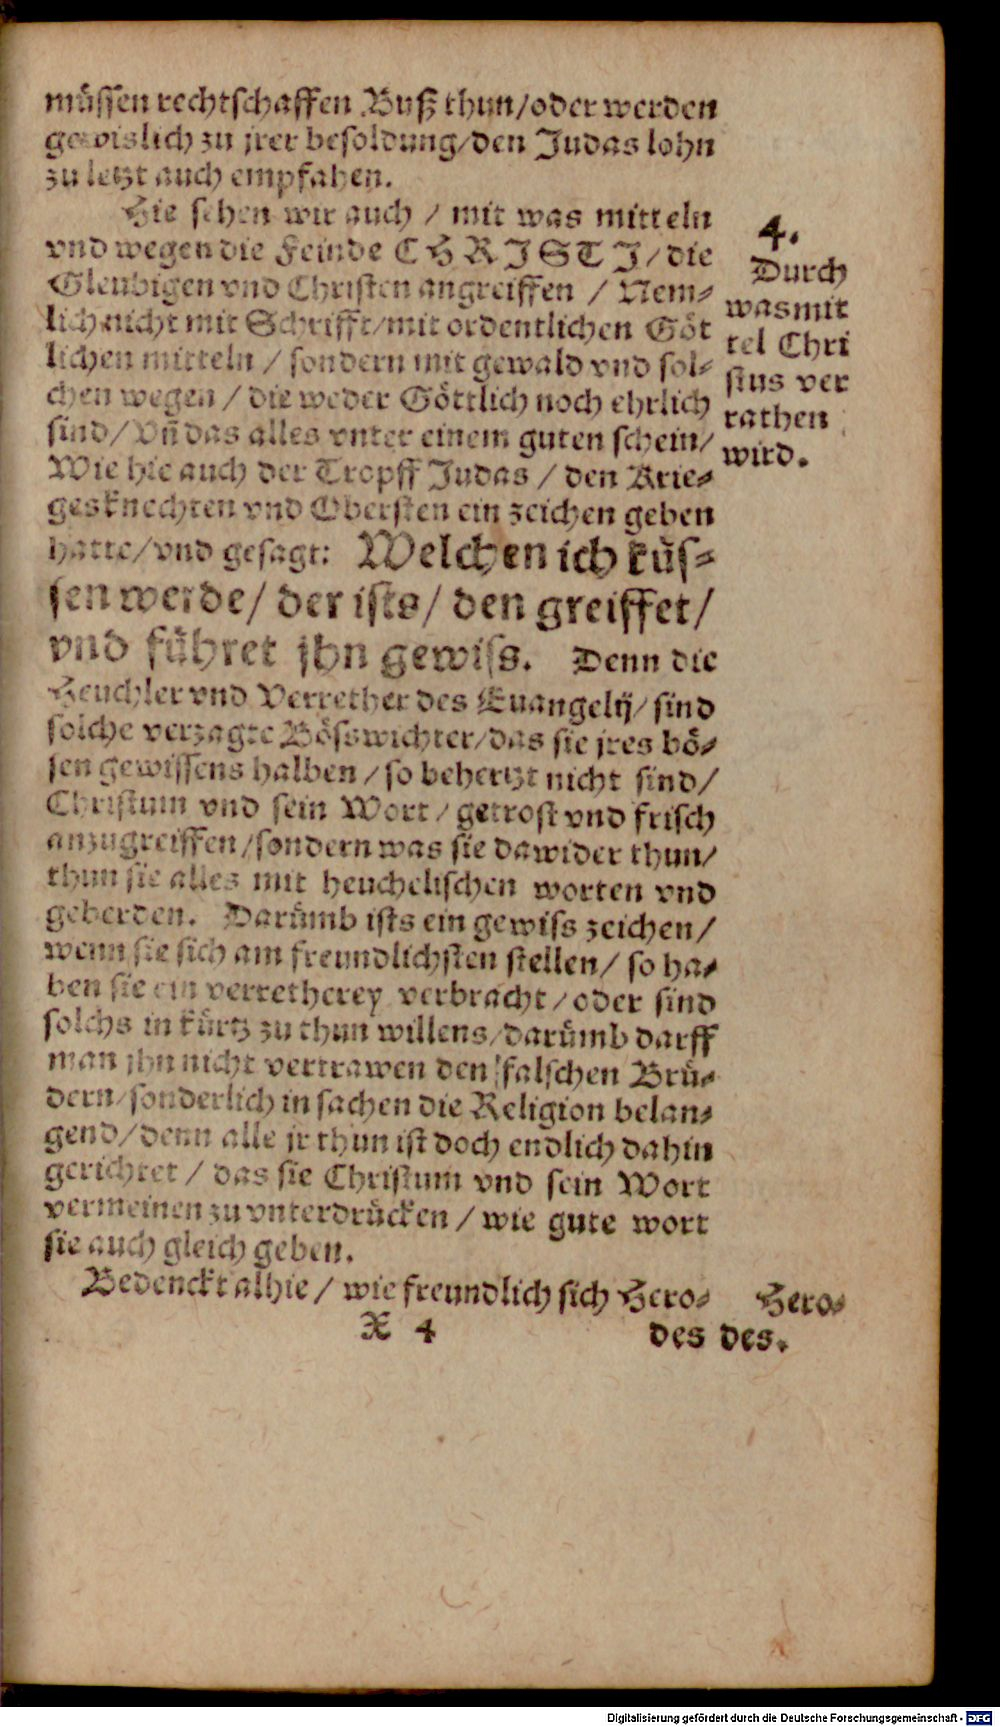 müssen rechtschaffen Buß thun/oder werden
gewislich zu jrer besoldung/den Judas lohn
zu letzt auch empfahen.
Hie sehen wir auch / mit was mitteln
vnd wegen die Feinde CHRISTJ/die
Gleubigen vnd Christen angreiffen / Nem⸗
lich nicht mit Schrifft/mit ordentlichen Göt
lichen mitteln / sondern mit gewald vnd sol⸗
chen wegen / die weder Göttlich noch ehrlich
sind/ Vñ das alles vnter einem guten schein/
Wie hie auch der Tropff Judas / den Krie⸗
gesknechten vnd Obersten ein zeichen geben
hatte/vnd gesagt: Welchen ich küs⸗
sen werde/ der ists/ den greiffet/
vnd führet jhn gewiss. Denn die
Heuchler vnd Verrether des Euangelij/ sind
solche verzagte Bösswichter/das sie jres bö⸗
sen gewissens halben / so behertzt nicht sind/
Christum vnd sein Wort / getrost vnd frisch
anzugreiffen/sondern was sie dawider thun/
thun sie alles mit heuchelischen worten vnd
geberden. Darümb ists ein gewiss zeichen/
wenn sie sich am freundlichsten stellen/ so ha⸗
ben sie ein verretherey verbracht / oder sind
solchs in kürtz zu thun willens/darümb darff
man jhn nicht vertrawen den falschen Brü⸗
dern/sonderlich in sachen die Religion belan⸗
gend/denn alle jr thun ist doch endlich dahin
gerichtet / das sie Christum vnd sein Wort
vermeinen zu vnterdrücken / wie gute wort
sie auch gleich geben.
Bedenckt alhie / wie freundlich sich Hero⸗
X 4
des
4.
Durch
was mit
tel Chri
stus ver
rathen
wird.
Hero⸗
des.
Digitalisierung gefördert durch die Deutsche Forschungsgemeinschaft - DFG